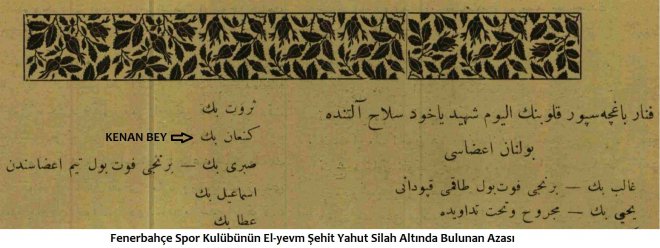 فنار باغچه سپور قلوبنك اليوم شهيد ياخود سلاح آلتنده
بولنان اعضاسی
غالب بك — برنجی فوتبول طاقمی قپودانی
يحيی بك — مجروح وتحت تداويده
ثروت بك
KENAN BEY
كنعان بك
صبری بك — برنجی فوت بول تيم اعضاسندن
اسماعيل بك
عطا بك
Fenerbahçe Spor Kulübünün El-yevm Şehit Yahut Silah Altında Bulunan Azası